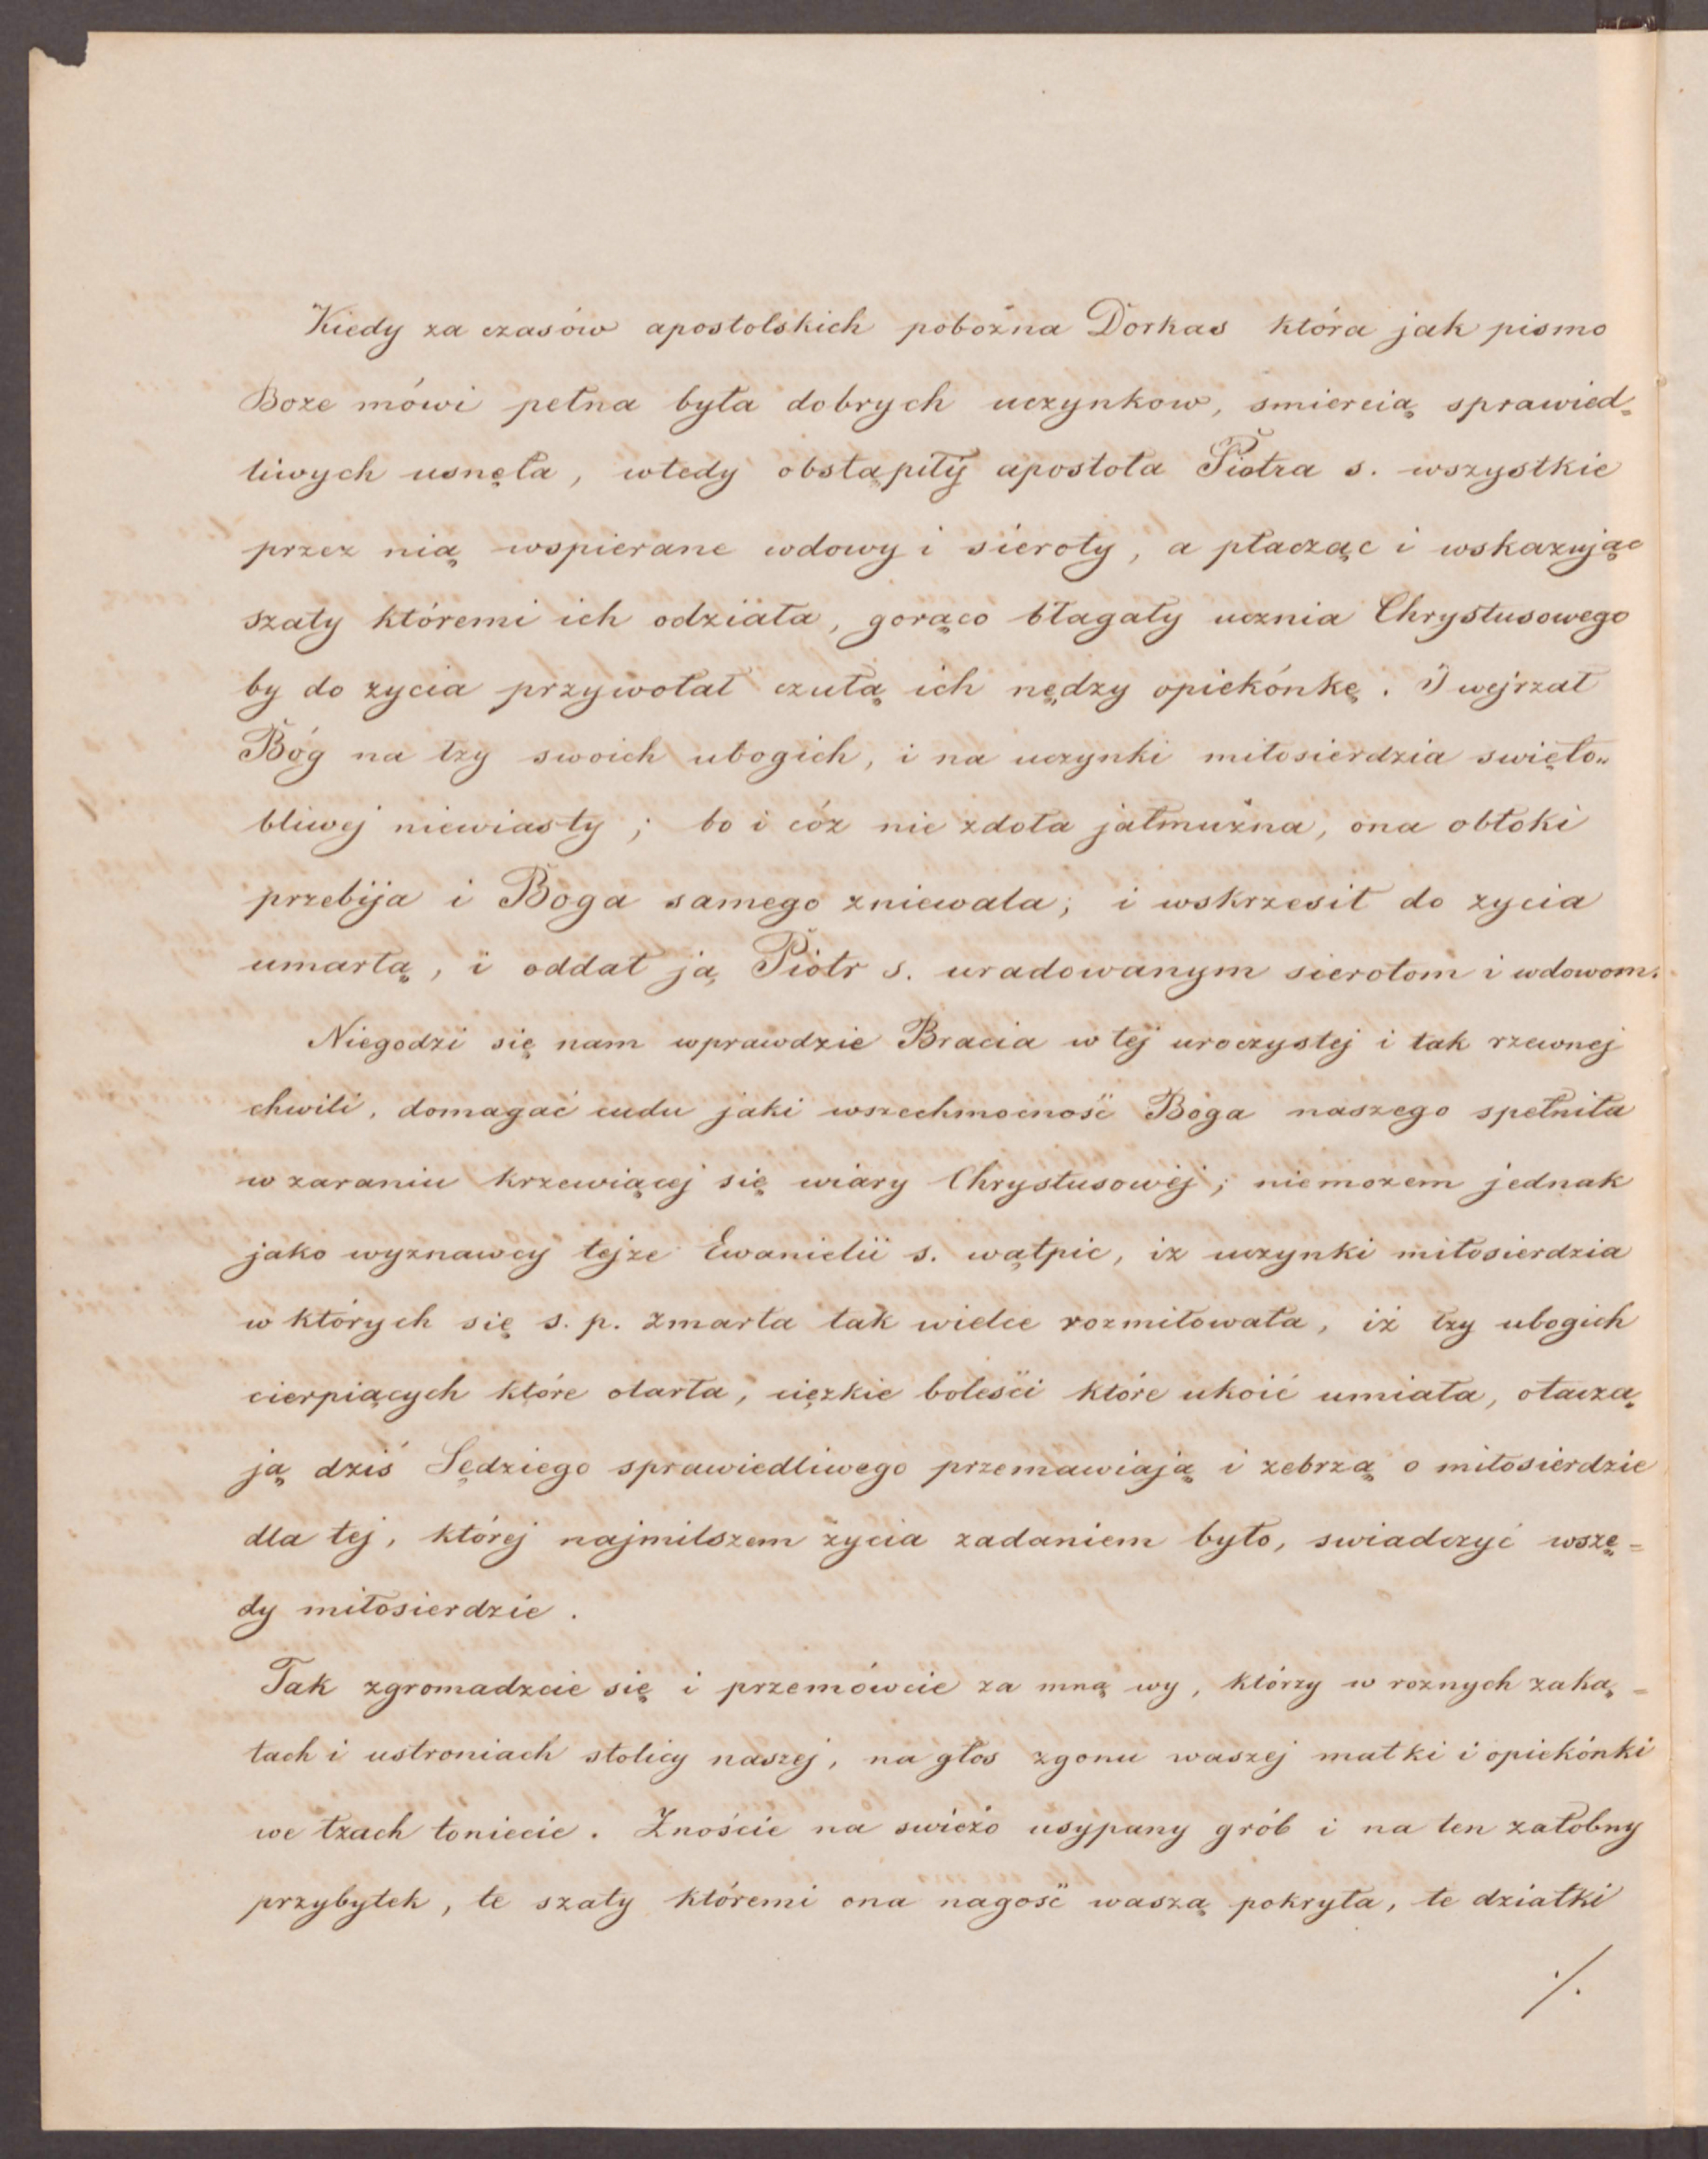 Kiedy za czasów apostolskich pobożna Dorkas która jak pismo
Boże mówi pełna była dobrych uczynkow, smiercią sprawied=
liwych usnęła, wtedy obstąpiły apostoła Piotra s. wszystkie
przez nią wspierane wdowy i sieroty, a płacząc i wskazując
szaty któremi ich odziała, gorąco błagały ucznia Chrystusowego
by do zycia przywołał czułą ich nędzy opiekónkę. I wejrzał
Bóg na łzy swoich ubogich, i na uczynki miłosierdzia swięto„
bliwej niewiasty; bo i cóz nie zdoła jałmużna, ona obłoki
przebija i Boga samego zniewala; i wskrzesił do zycia
umarłą, i oddał ją Piotr s. uradowanym sierotom i wdowom.
Niegodzi się nam wprawdzie Bracia w tej uroczystej i tak rzewnej
chwili, domagać cudu jaki wszechmocność Boga naszego spełniła
w zaraniu krzewiącej się wiary Chrystusowéj; niemozem jednak
jako wyznawcy tejze Ewanielii s. wątpic, iz uczynki miłosierdzia
w których się s. p. Zmarła tak wielce rozmiłowała, iż łzy ubogich
cierpiących które otarła, cięzkie boleści które ukoić umiała, otacza„
ją dziś Sędziego sprawiedliwego przemawiają i zebrzą o miłosierdzie
dla tej, której najmilszem życia zadaniem było, swiadczyć wszę=
dy miłosierdzie.
Tak zgromadzcie się i przemówcie za mną wy, którzy w roznych zaką=
tach i ustroniach stolicy naszej, na głos zgonu waszej matki i opiekónki
we łzach toniecie. Znoście na swieżo usypany grób i na ten załobny
przybytek, te szaty któremi ona nagość waszą pokryła, te dziatki
./.